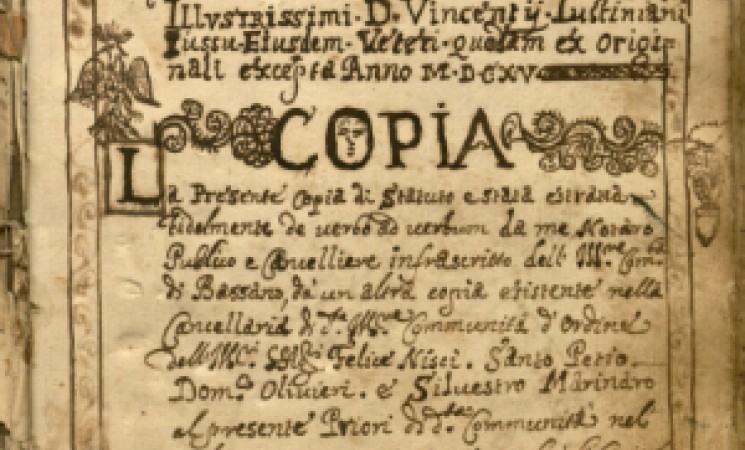 Illustrissimi · D · Vincentij · Iustiniani
Iussu · Eiusdem · Veteri · quodam ex origi=
nali excepta Anno M·D·CXV
COPIA
La Presente copia di Statuto e stata estratta
fidelmente de verbo ad verbum da me Notaro
Publico e Cancelliere infrascritto dell
di Bassano, da un altra copia esistente nella
Cancellaria di Communità d'ordine
Felice Nisci. Santo Petio
Dom.co Olivieri. e Silvestro Marindro
al presente Priori di d.ta Communità nel